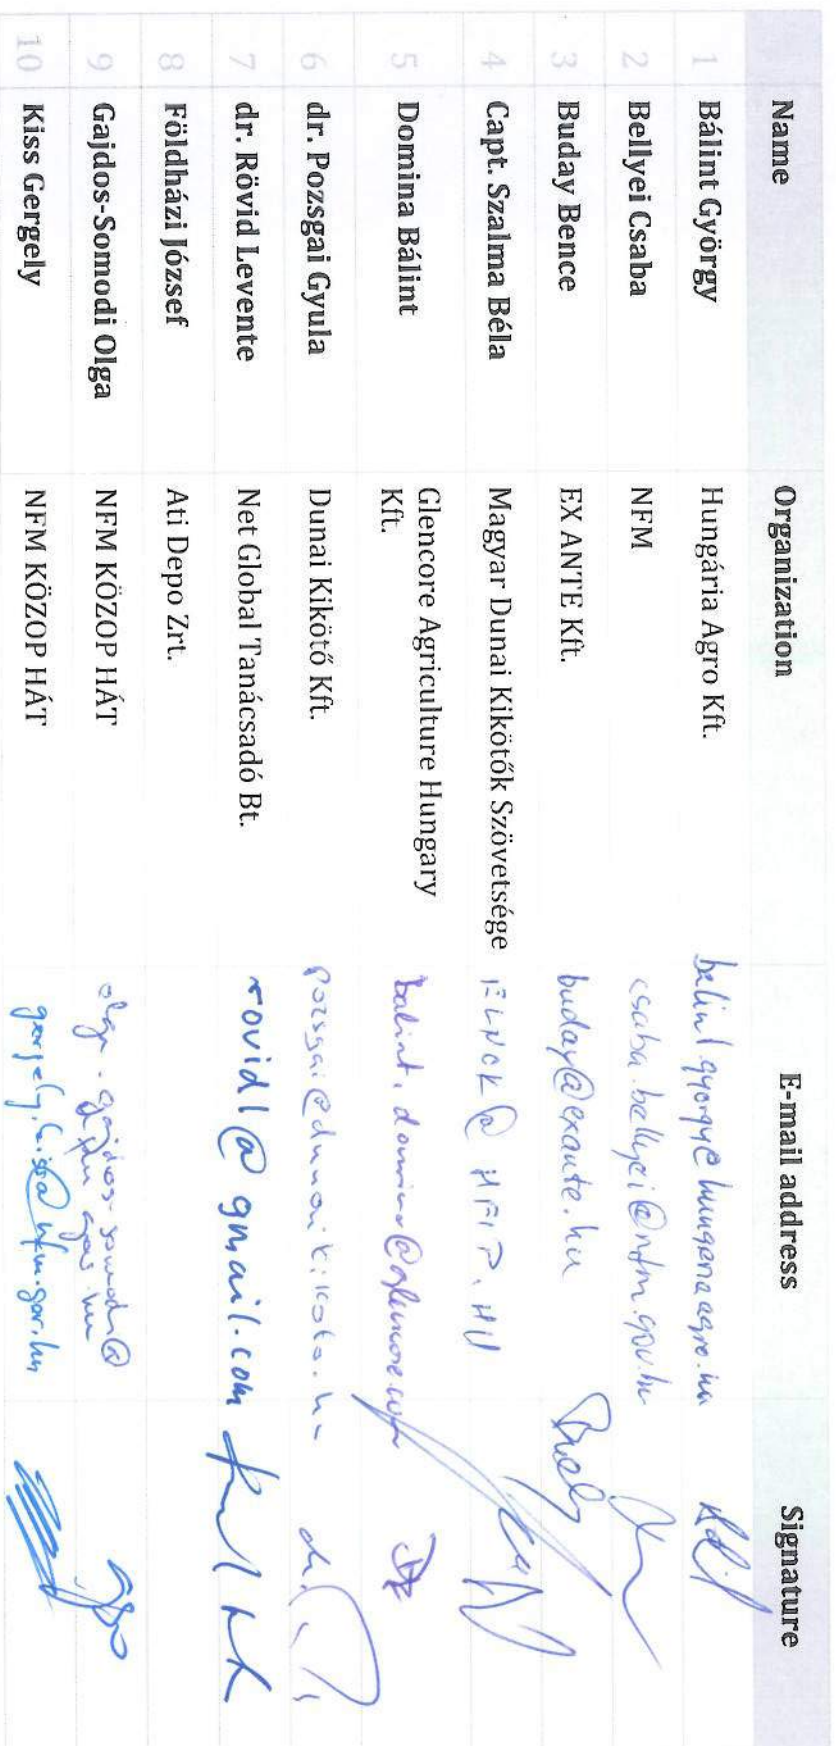 Name Organization E-mail address Signature
1 Bálint György Hungária Agro Kft. balint.gyorgy@hungariaagro.hu
2 Bellyei Csaba NFM csaba.bellyei@nfm.gov.hu
3 Buday Bence EX ANTE Kft. buday@exante.hu
4 Capt. Szalma Béla Magyar Dunai Kikötők Szövetsége
5 Domina Bálint Glencore Agriculture Hungary
Kft. balint.domina@glencore.com
6 dr. Pozsgai Gyula Dunai Kikötő Kft. pozsgai@dunaikikoto.hu
7 dr. Rövid Levente Net Global Tanácsadó Bt. rovidl@gmail.com
8 Földházi József Ati Depo Zrt.
9 Gajdos-Somodi Olga NFM KÖZOP HÁT olga.gajdos-somodi@
nfm.gov.hu
10 Kiss Gergely NFM KÖZOP HÁT gergely.kiss@nfm.gov.hu